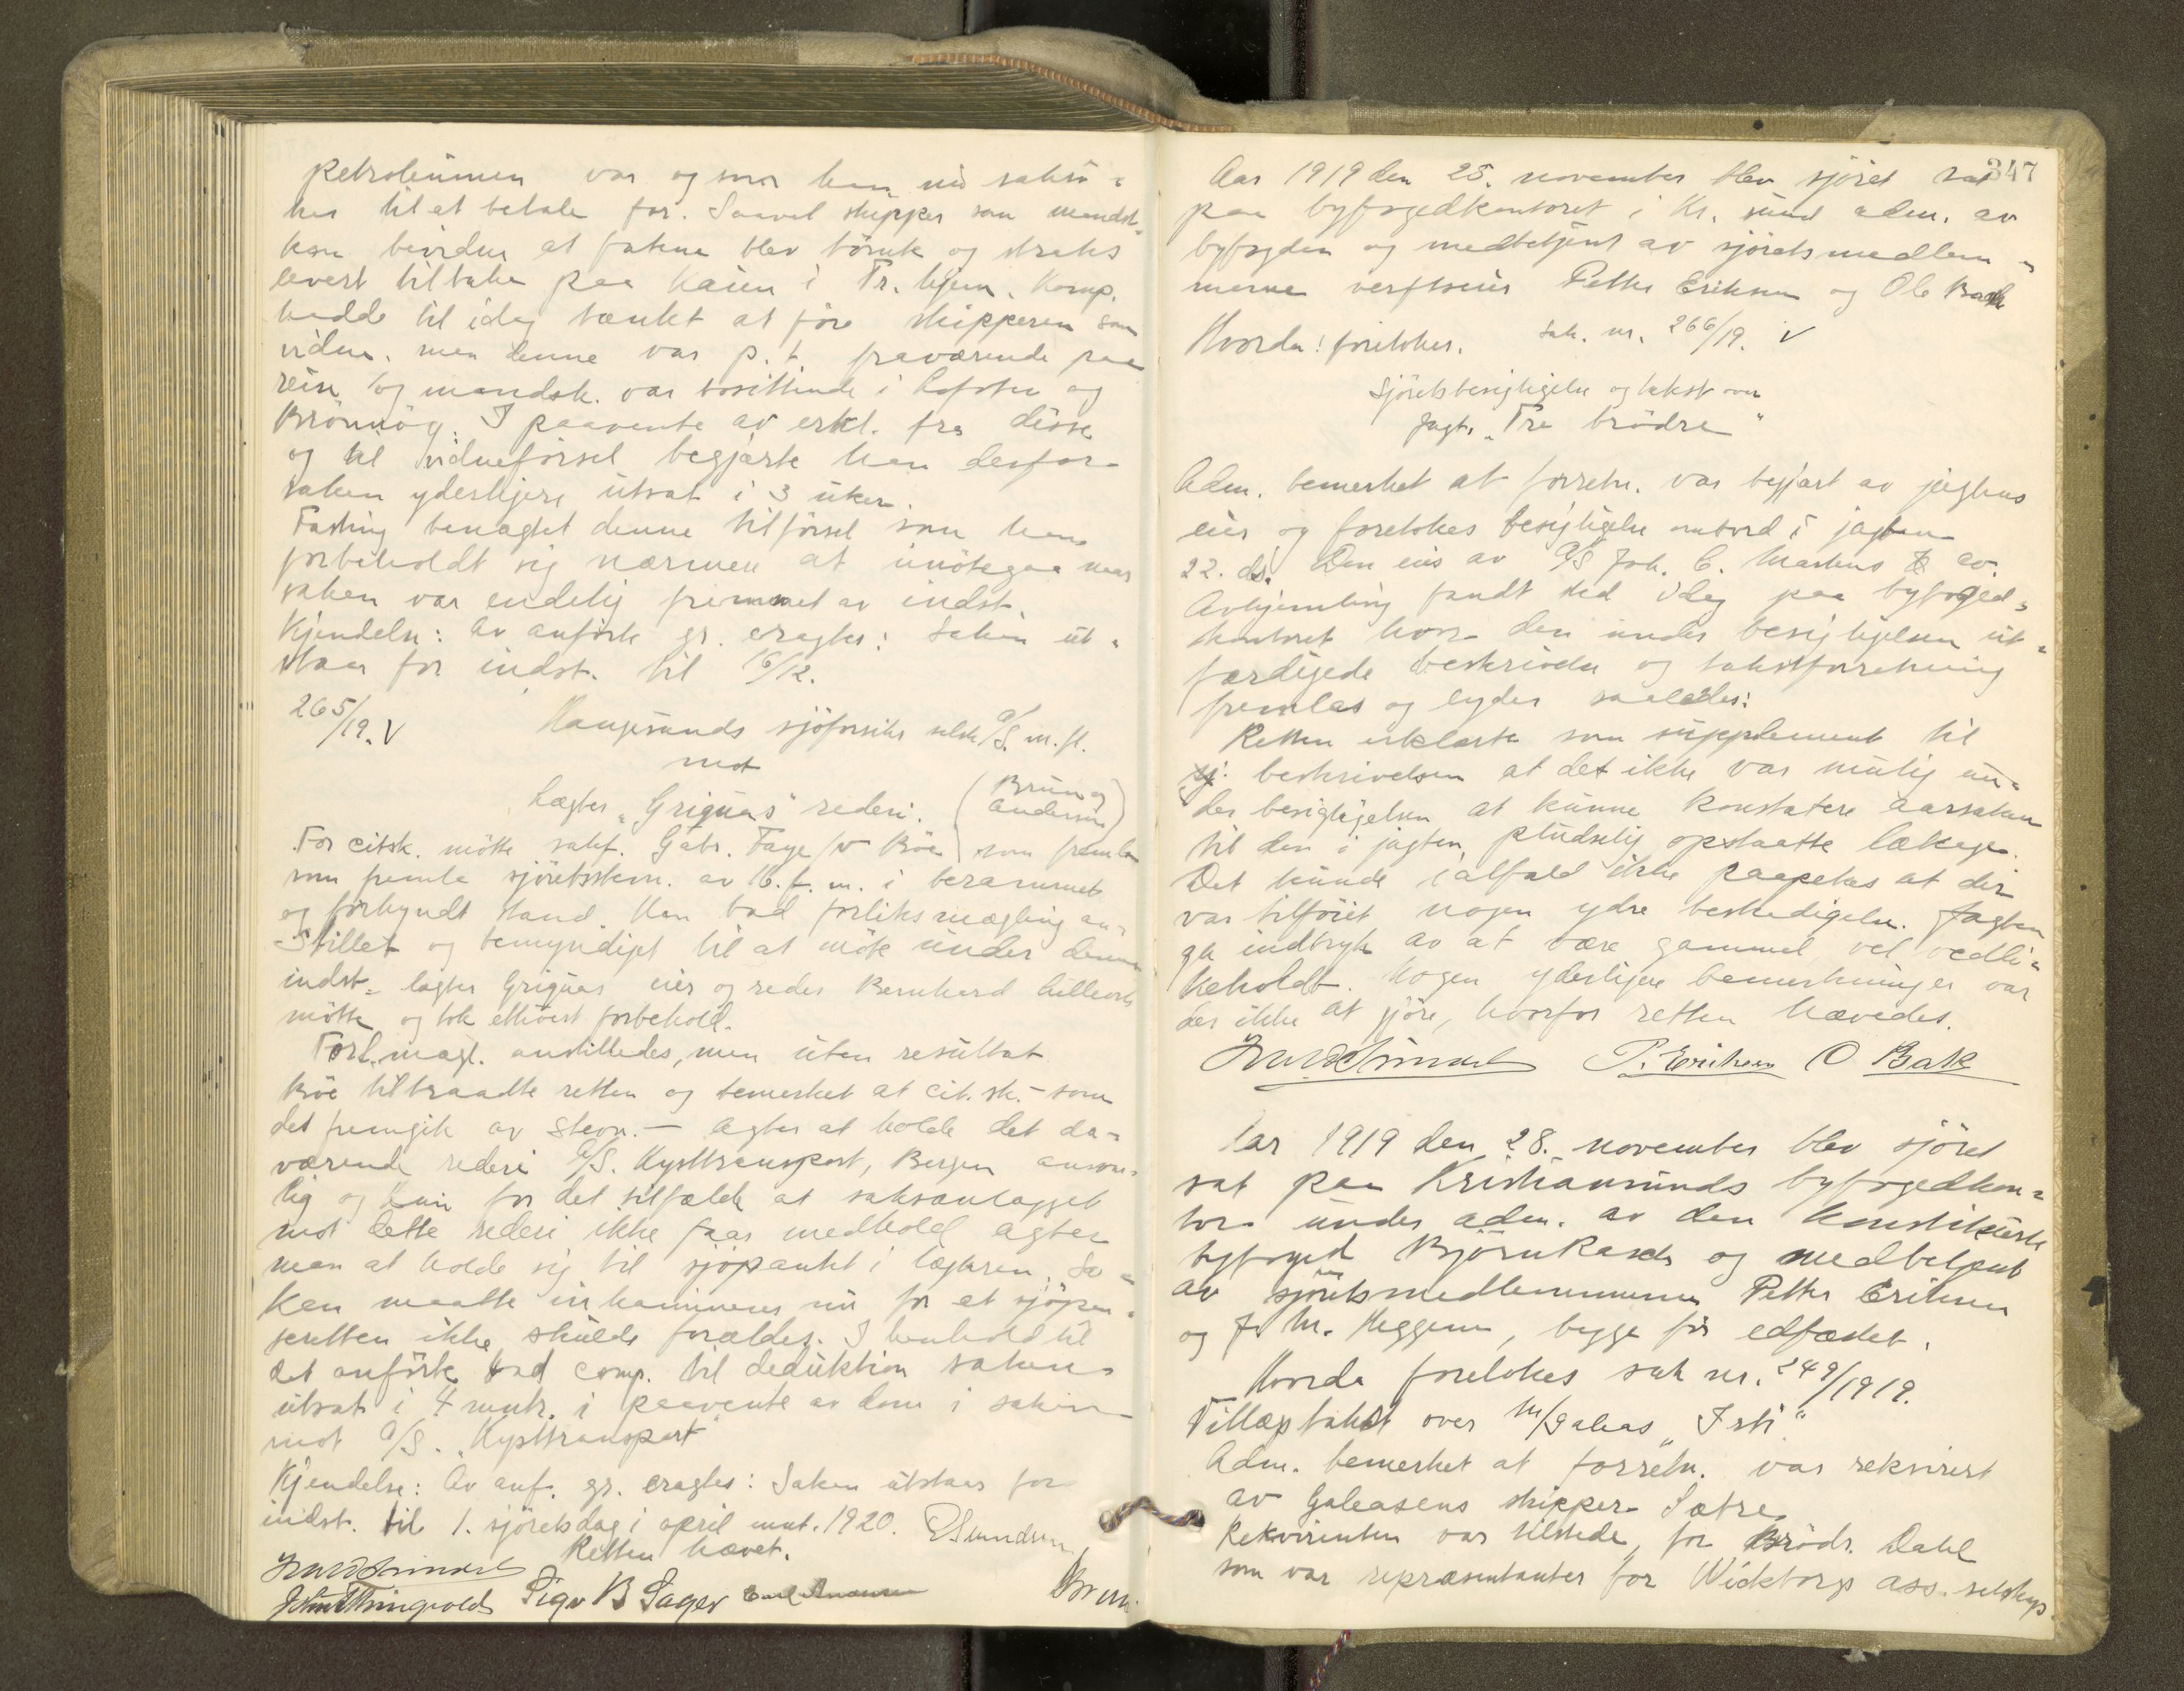 petroleumen var og som han nu saksö-
kes til at betale for. Saavel skipper som mandsk-
kan bevidne at fatene blev tömte og straks
levert tilbake paa kaien i Tr.hjem. Komp.
hadde til idag tænkt at före skipperen som
vidne, men denne var p.t. fraværende paa
reise og mandsk. var bosittende i Lofoten og
Brönnöy. I paavente av erkl. fra disse
og til vidneförsel begjærte han derfor
saken yderligere utsat i 3 uker.
Fasting benægtet denne tilförsel som han
forbeholdt sig nærmere at imötegaa naar
saken var endelig fremmet av indst.
Kjendelse: Av anförte gr. eragtes: Saken ut-
staar for indst. til 16/12.
265/19. V Haugesunds sjöforsikr. selsk. A/S. m. fl.
mot
Lægter "Griguas" rederi. (Brun og Andersen)
For citsk. mötte sakf. Gabr. Faye v/ Böe som fremla
som fremla sjöretsstevn. av 16. f. m. i berammet
og forkyndt stand. Han bad forliksmægling an-
stillet og bemyndiget til at möte under denne
indst. lægter Griguas eier og reder Bernhard
mötte og tok ethvert forbehold.
Forl.mægl. anstilledes, men uten resultat.
Böe tiltraadte retten og bemerket at cit.sk. - som
det fremgik av stevn. - agter at holde det da-
værende rederi A/S. Kysttransport, Bergen ansvar-
lig og kun for det tilfælde at saksanlægget
mot dette rederi ikke faar medhold agter
man at holde sig til sjöpantet i lægteren. Sa-
ken maatte inkamineres nu for at sjöpan-
teretten ikke skulde forældes. I henhold til
det anförte bad comp. til deduktion saken
utsat i 4 mndr. i paavente av dom i saken
mot A/S. "Kysttransport"
Kjendelse: Av anf. gr. eragtes: Saken utstaar for
indst. til 1. sjöretsdag i april mnt. 1920.
Retten hævet.
Sigv B Sager
347
Aar 1919 den 25. november blev sjöret sat
paa byfogedkontoret i Kr.sund adm. av
byfogden og medbetjent av sjöretsmedlem-
merne verftseier Petter Eriksen og Ole Bak
Hvorda: foretokes. Sak. nr. 266/19. V
Sjöretsbesigtigelse og takst over
Jagt. "Tre brödre"
Adm. bemerket at forretn. var begjært av jagtens
eier og foretokes besigtigelse ombord i jagten
22. ds. Den eies av A/S Joh. C. Martens & co.
Avhjemling fandt sted idag paa byfoged-
kontoret hvor den under besigtigelsen ut-
færdigede beskrivelse og takstforretning
fremlas og lyder saaledes:
Retten erklærte som supplement til
beskrivelsen at det ikke var mulig un-
der besigtigelsen at kunne konstatere aarsaken
til den i jagten pludselig opstaatte lækage.
Det kunde ialfald ikke paapekes at der
var tilföiet nogen ydre beskadigelse. Jagten
ga indtryk av at være gammel, vel vedli-
keholdt. Nogen yderligere bemerkninger var
der ikke at gjöre, hvorfor retten hævedes.
P. Eriksen O Bak
Aar 1919 den 28. november blev sjöret
sat paa Kristiansunds byfogedkon-
tor under adm. av den konstituerte
byfoged Björn Rasch og medbetjent
av sjöretsmedlemmerne Petter Eriksen
og J. M. Heggem, begge för edfæstet.
Hvorda foretokes sak nr. 249/1919.
Tillægstakst over m/galeas "Isti"
Adm. bemerket at forretn. var rekvirert
av Galeasens skipper Sætre.
Rekvirenten var tilstede, for Brödr. Dahl
som var repræsentanter for Wicktorgs ass. selskap.